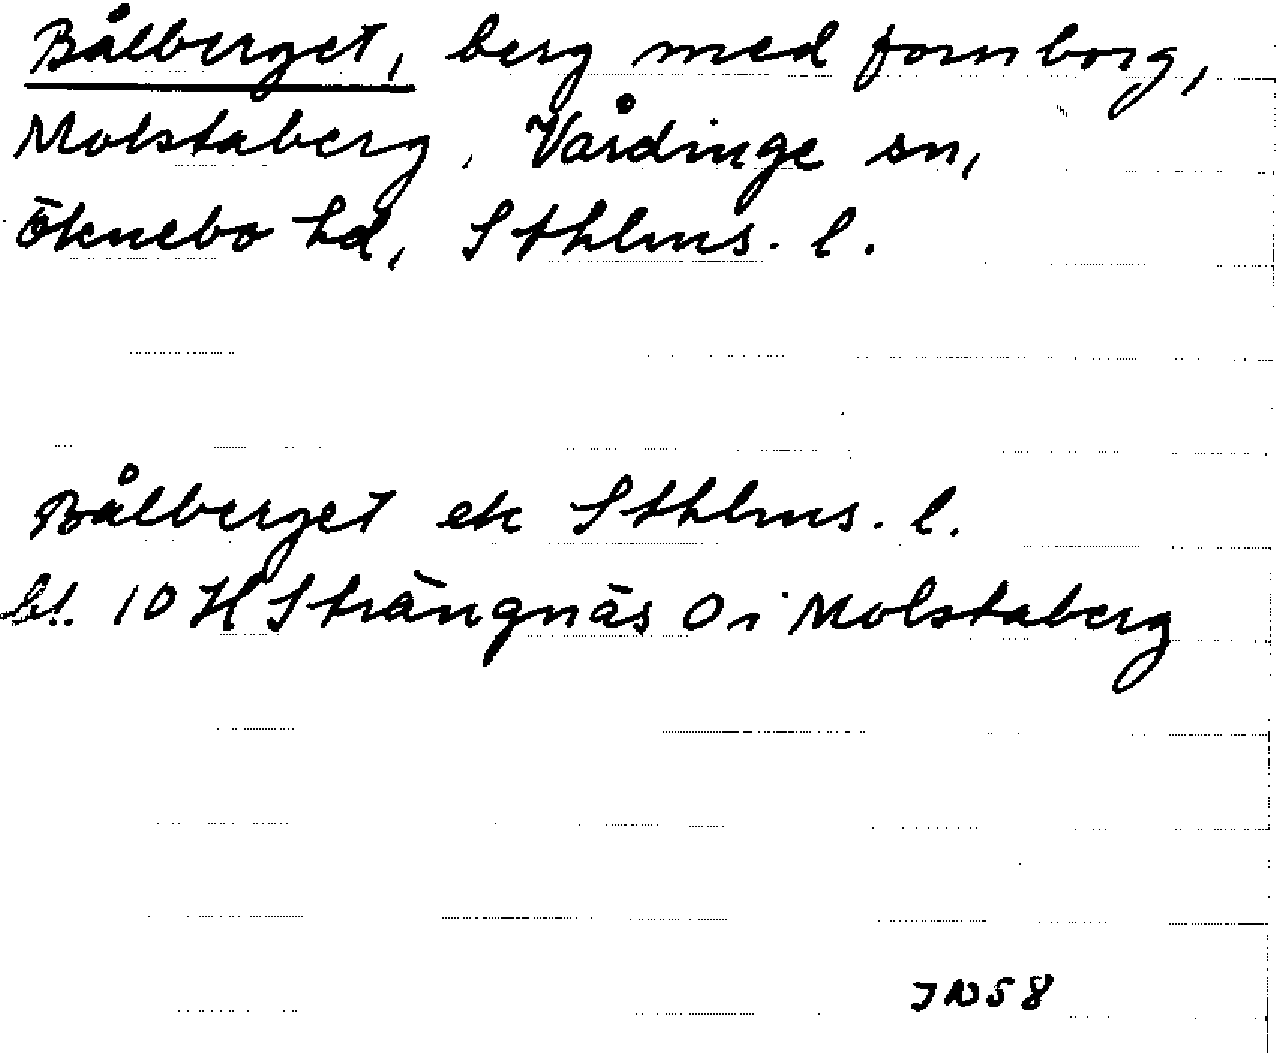 Bålberget, berg med fornborg,
Molstaberg, Vårdinge sn,
Öknebo hd, Sthlms. l.
Bålberget ek Sthlms. l.
bl. 10 H Strängnäs O i Molstaberg
JN58